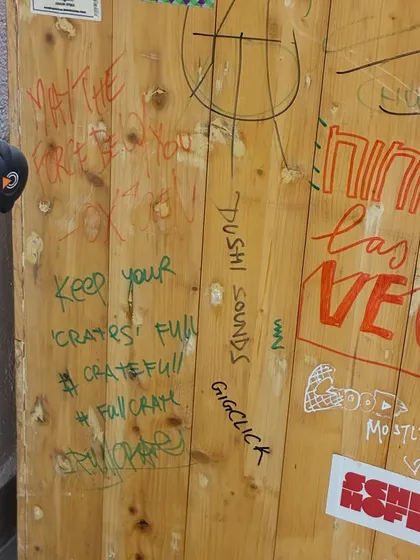 MAY THE
FORCE BE W YOU
KEEP YOUR
'CRATES' FULL
# CRATEFULL
# FULLCRATE
DUSHI SOUNDS
GIGCLICK
las
VE
MOSTL
SCH
HOF